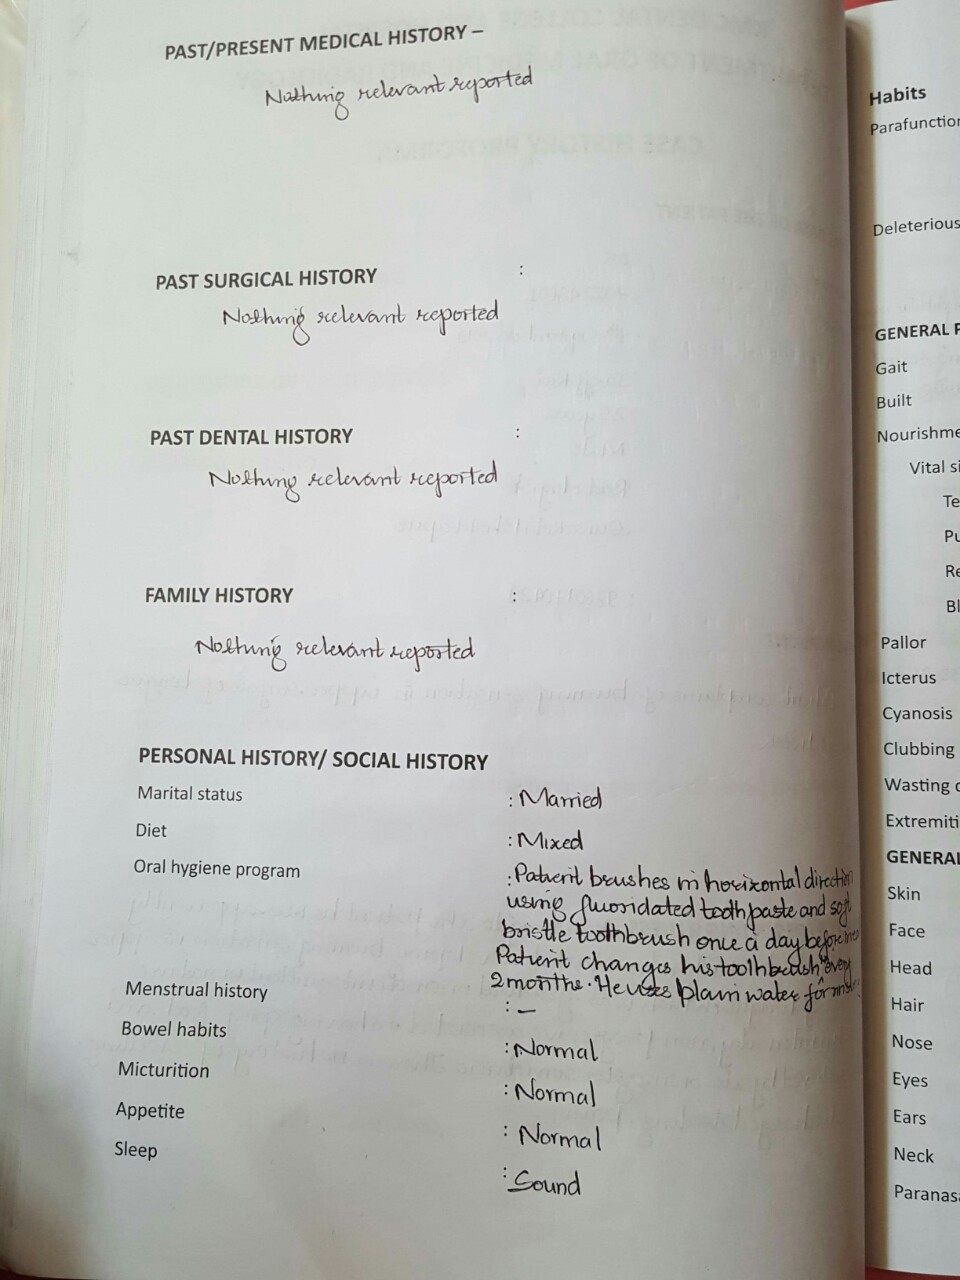 PAST/PRESENT MEDICAL HISTORY –
Nothing relevant reported
PAST SURGICAL HISTORY :
Nothing relevant reported
PAST DENTAL HISTORY :
Nothing relevant reported
FAMILY HISTORY :
Nothing relevant reported
PERSONAL HISTORY/ SOCIAL HISTORY
Marital status : Married
Diet : Mixed
Oral hygiene program : Patient brushes in horizontal direction
using fluoridated toothpaste and soft
bristle toothbrush once a day before
Patient changes his toothbrush every
2 months. He uses plain water for
Menstrual history : –
Bowel habits : Normal
Micturition : Normal
Appetite : Normal
Sleep : Sound
Habits
Parafunction
Deleterious
GENERAL P
Gait
Built
Nourishme
Vital si
Te
Pu
Re
Bl
Pallor
Icterus
Cyanosis
Clubbing
Wasting o
Extremiti
GENERAL
Skin
Face
Head
Hair
Nose
Eyes
Ears
Neck
Paranasa